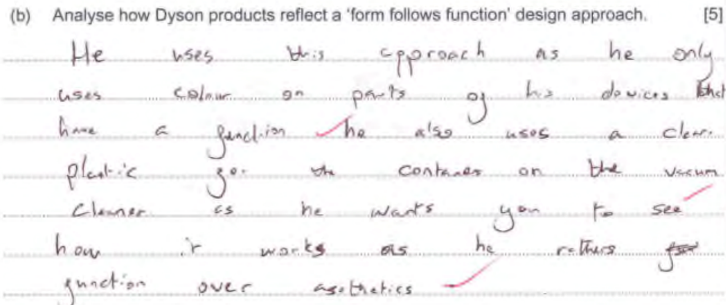 (b) Analyse how Dyson products reflect a 'form follows function' design approach. [5]
He uses this approach as he only
uses colour on parts of his devices that
have a function he also uses a clear
plastic for the container on the vacum
cleaner as he wants you to see
how it works as he rathers
function over asethetics